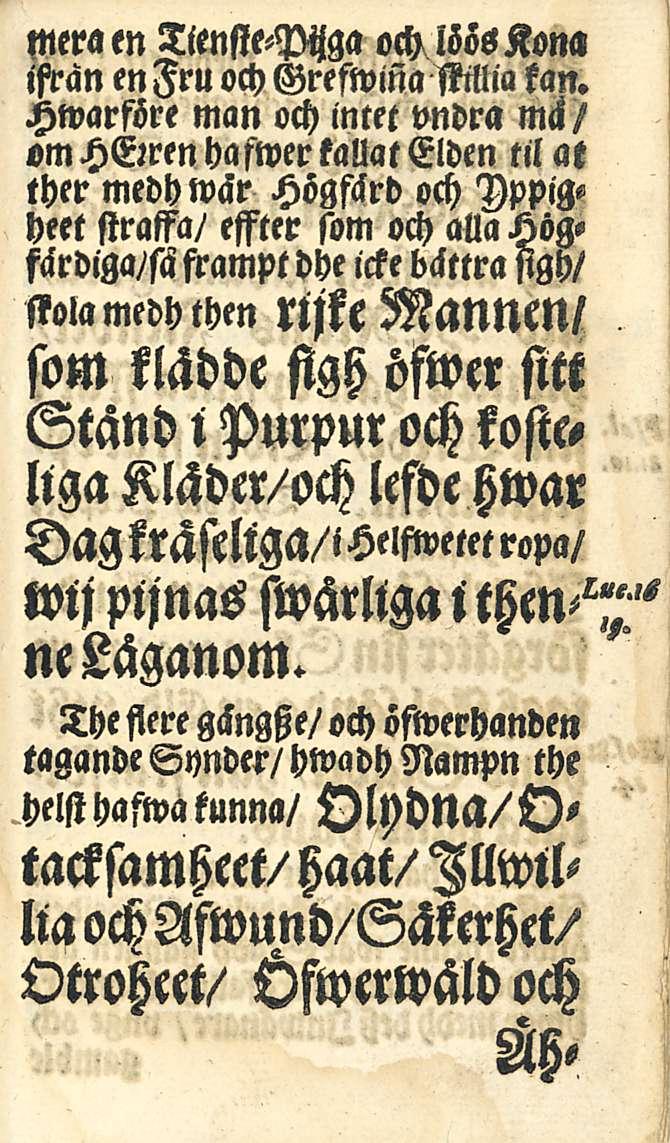 mera en Tienste-Pijga och löös Kona
ifrån en Fru och Grefwiña skillia kan.
Hwarföre man och intet vndra må /
om HErren hafwer kallat Elden til at
ther medh wår Högfärd och Yppig-
heet straffa/ effter som och alla Hög-
färdiga/så frampt dhe icke bättra sigh/
skola medh then rijke Mannen/
som klädde sigh öfwer sitt
Stånd i Purpur och koste-
liga Kläder/och lefde hwar
Dag kräseliga/i Helfwetet ropa/
wij pijnas swårliga i then-
Luc.16
19.
ne Låganom.
The flere gängße/ och öfwerhanden
tagande Synder/ hwadh Nampn the
helst hafwa kunna/ Olydna/ O-
tacksamheet/ haat/ Illwil-
lia och Afwund/Säkerhet/
Otroheet/ Öfwerwåld och
Äh-